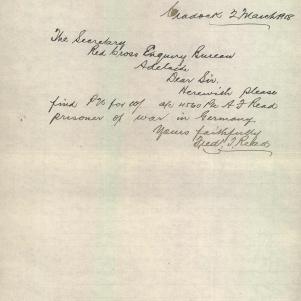 Cradock 2 March 1918
The Secretary
Red Cross Enquiry Bureau
Adelaide
Dear Sir.
Herewith please
find P/N for 20/ a/c 4560 Pte A J Read
prisoner of war in Germany
Yours faithfully
Fred. J. Read